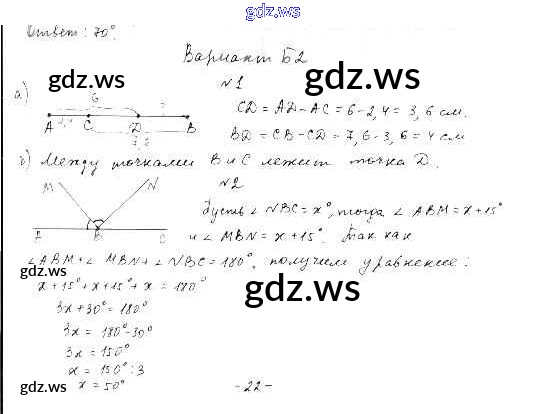 gdz.ws
Ответ: 70°.
Вариант Б2
gdz.ws
gdz.ws
№1
а)
6
A C D B
2,4
7,6
CD = AD - AC = 6 - 2,4 = 3,6 см.
BD = CB - CD = 7,6 - 3,6 = 4 см
Между точками B и C лежит точка D.
№2
M N
A B C
Пусть ∠NBC = x°, тогда ∠ABM = x + 15°
и ∠MBN = x + 15°. Так как
∠ABM + ∠MBN + ∠NBC = 180°, получим уравнение:
x + 15° + x + 15° + x = 180°
3x + 30° = 180°
3x = 180° - 30°
3x = 150°
x = 150° : 3
x = 50°
gdz.ws
gdz.ws
gdz.ws
- 22 -